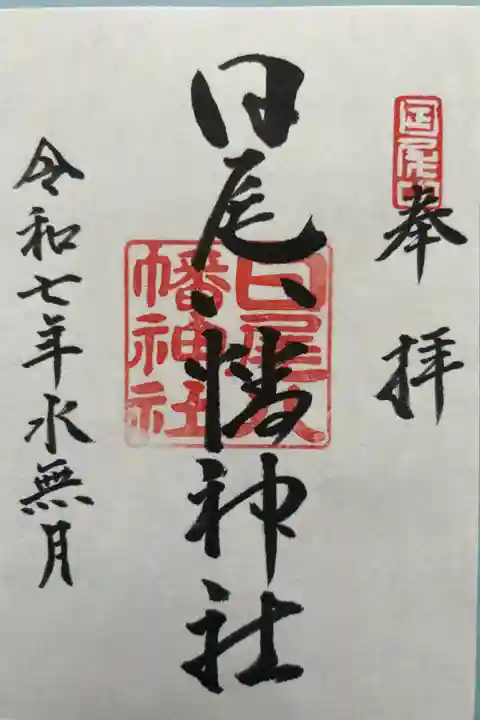 奉拝
日尾八幡神社
日尾八幡神社
令和七年水無月